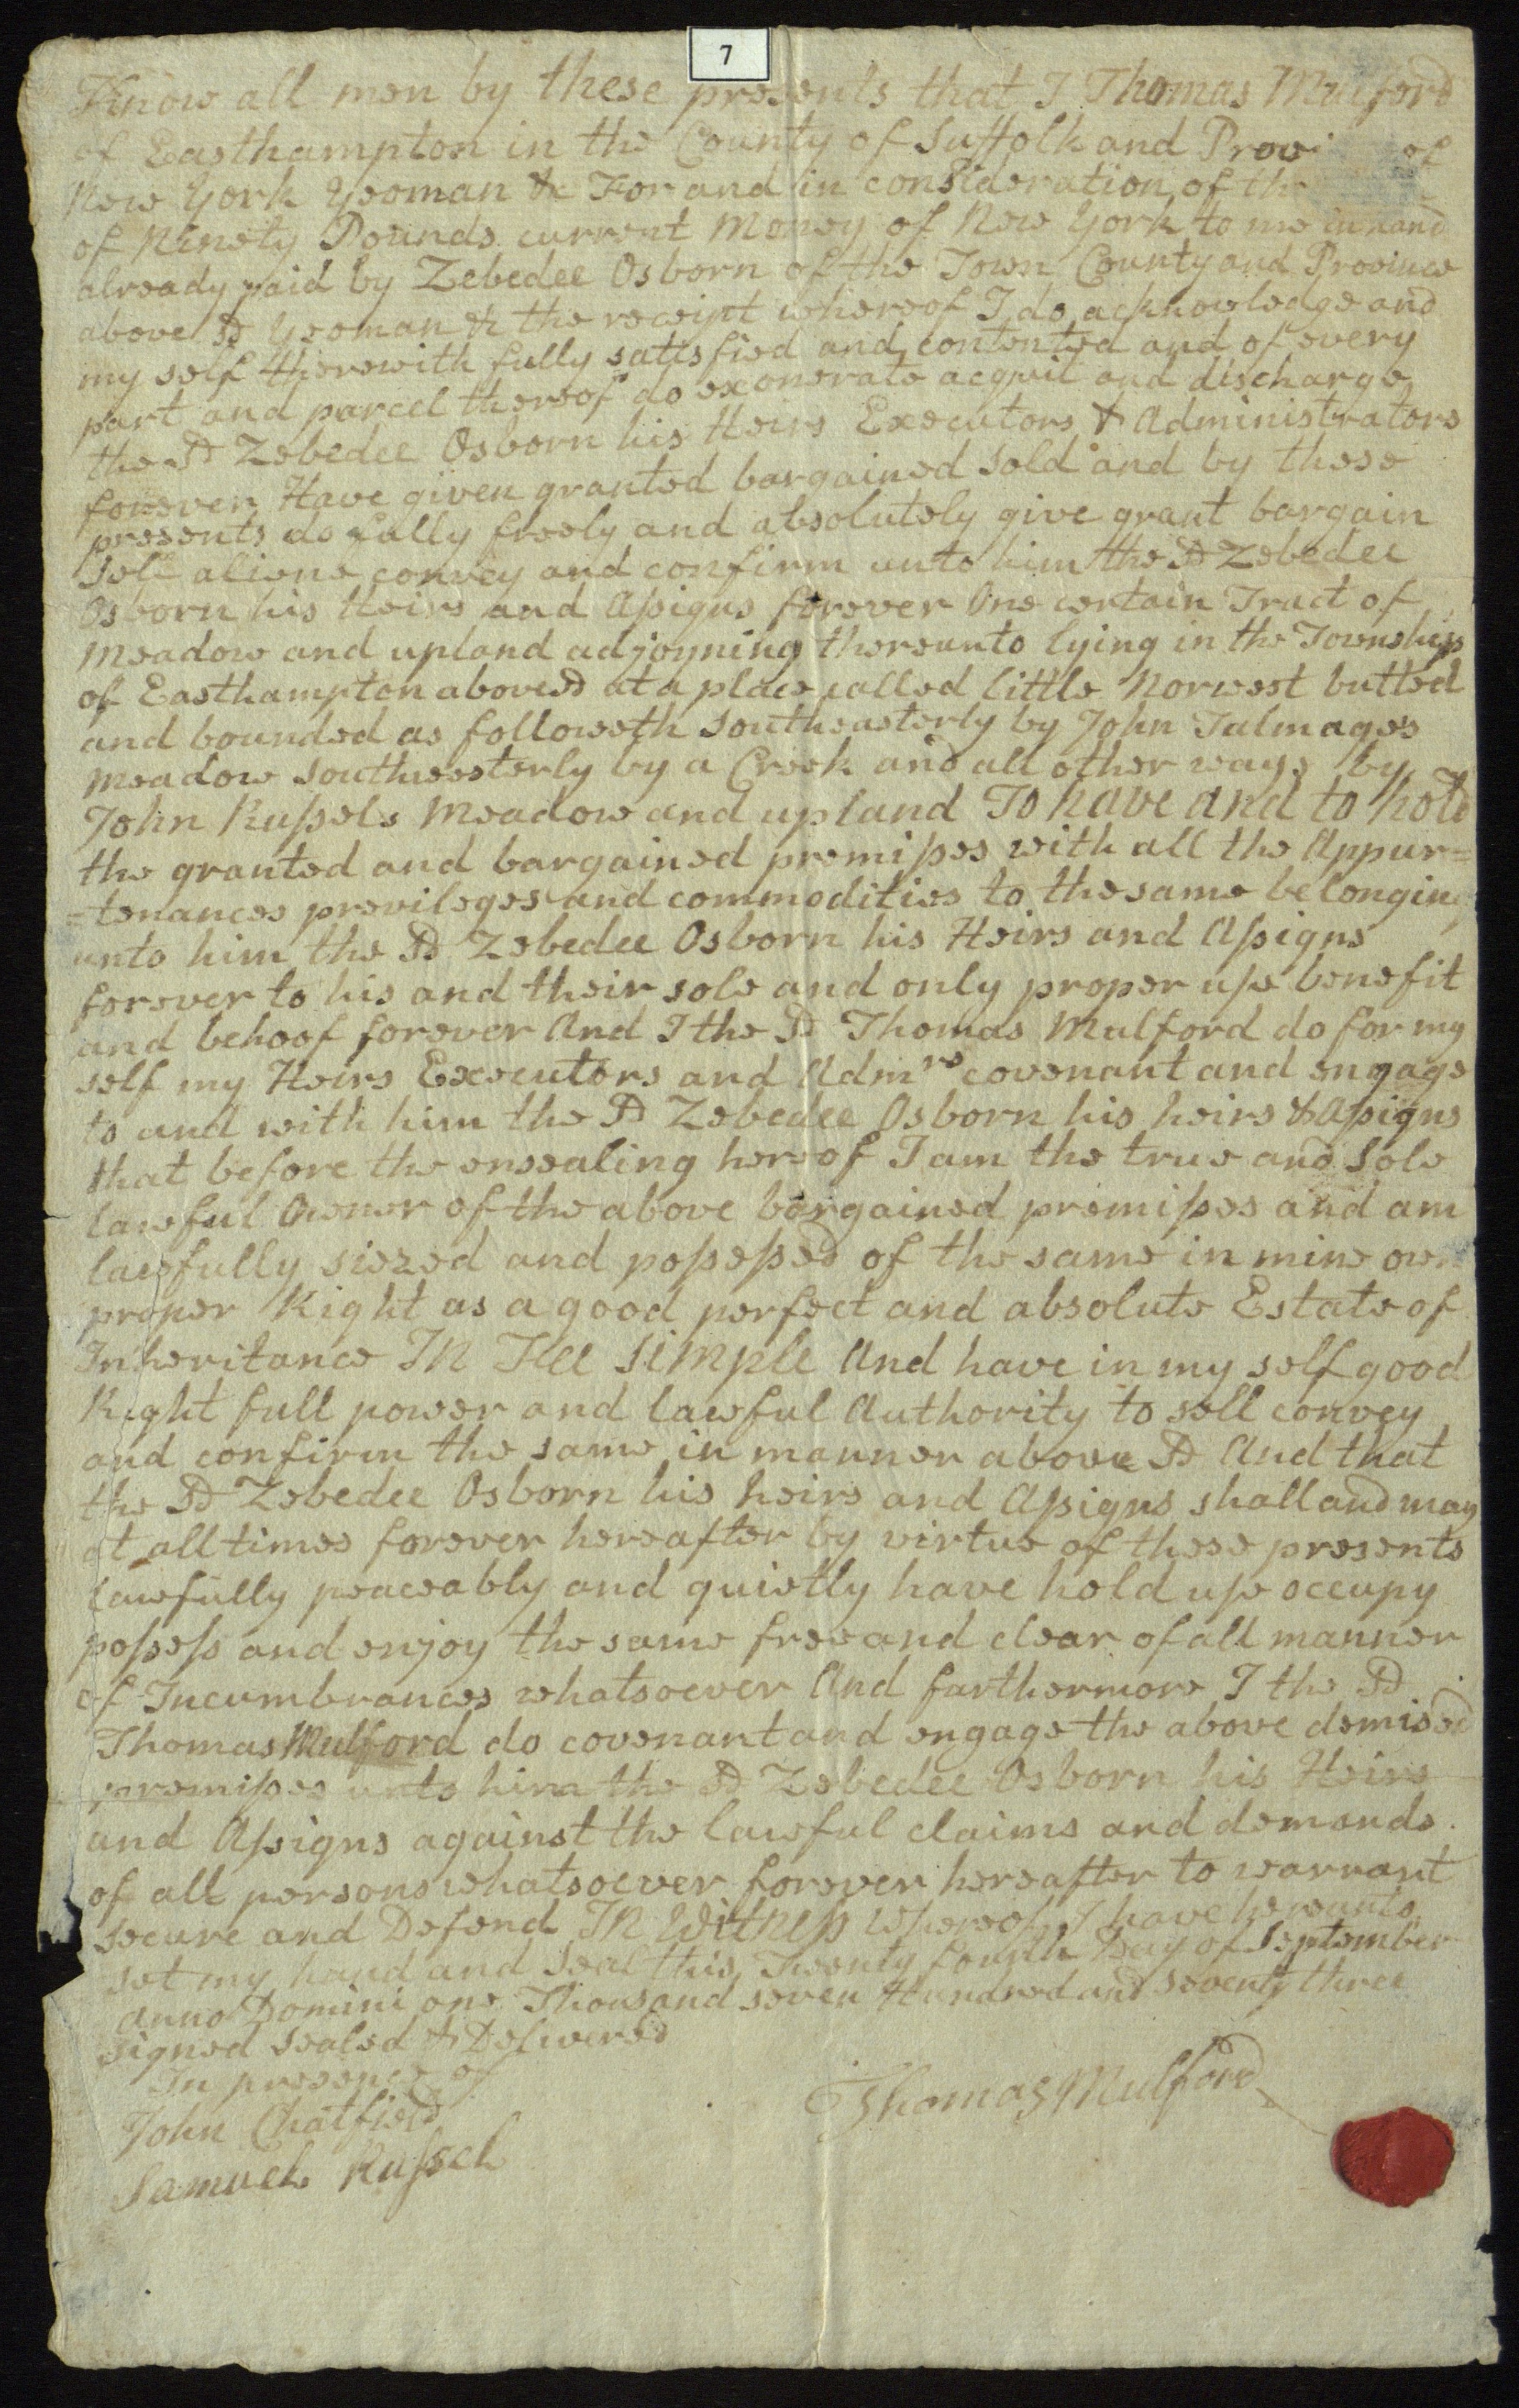 7
Know all men by these presents that I Thomas Mulford
of Easthampton in the County of Suffolk and Provi of
New York Yeoman &c For and in consideration of the
of Ninety Pounds current Money of New York to me in hand
already paid by Zebedee Osborn of the Town County and Province
above sd Yeoman &c the receipt whereof I do acknowledge and
my self therewith fully satisfied and contented and of every
part and parcel thereof do exonerate acquit and discharge
the sd Zebedee Osborn his Heirs Executors & Administrators
forever Have given granted bargained sold and by these
presents do fully freely and absolutely give grant bargain
sell aliene convey and confirm unto him the sd Zebedee
Osborn his Heirs and Aſsigns forever One certain Tract of
Meadow and upland adjoyning thereunto lying in the Township
of Easthampton abovesd at a place called little Norwest butted
and bounded as followeth Southeasterly by John Talmages
Meadow Southwesterly by a Creek and all other ways by
John Ruſsels Meadow and upland To have and to hold
the granted and bargained premiſses with all the Appur=
=tenances previleges and commodities to the same belonging
unto him the sd Zebedee Osborn his Heirs and Aſsigns
forever to his and their sole and only proper uſe benefit
and behoof forever And I the sd Thomas Mulford do for my
self my Heirs Executors and Admrs covenant and engage
to and with him the sd Zebedee Osborn his heirs & Aſsigns
that before the ensealing hereof I am the true and Sole
lawful Owner of the above bargained premiſses and am
lawfully siezed and poſseſsed of the same in mine own
proper Right as a good perfect and absolute Estate of
Inheritance In Fee Simple And have in my self good
Right full power and lawful Authority to sell convey
and confirm the same in manner above sd And that
the sd Zebedee Osborn his heirs and Aſsigns shall and may
at all times forever hereafter by virtue of these presents
lawfully peaceably and quietly have hold uſe occupy
poſseſs and enjoy the same free and clear of all manner
of Incumbrances whatsoever And farthermore I the sd
Thomas Mulford do covenant and engage the above demised
premiſses unto him the sd Zebedee Osborn his Heirs
and Aſsigns against the lawful claims and demands
of all persons whatsoever forever hereafter to warrant
secure and Defend In Witneſs whereof I have hereunto
set my hand and Seal this Twenty fourth Day of September
Anno Domini one Thousand seven Hundred and Seventy three
Signed Sealed & Delivered
In presence of
John Chatfield
Samuel Ruſsel
Thomas Mulford